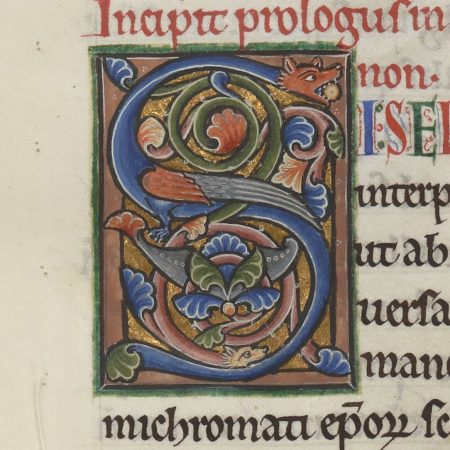 Incipit prologus in
non·
SI·SE
interp
ut ab
uersa
mane
michromati ep̄oꝝ sc